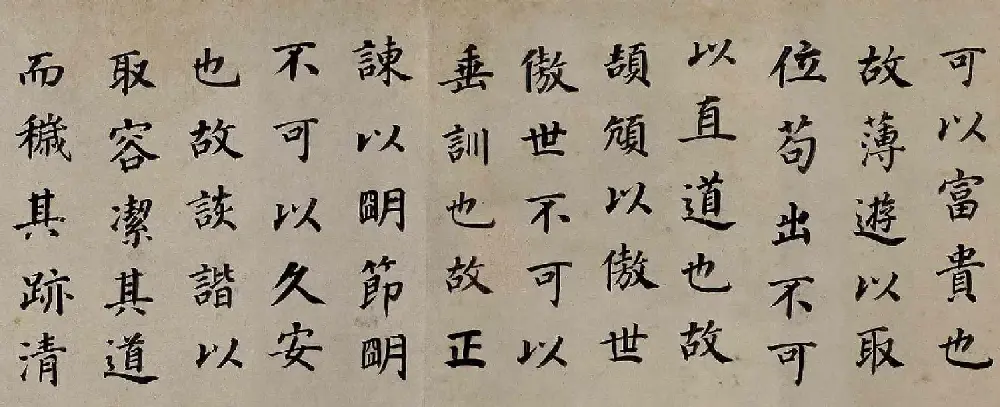 可以富貴也
故薄遊以取
位苟出不可
以直道也故
頡頏以傲世
傲世不可以
垂訓也故正
諫以明節明
不可以久安
也故談諧以
取容潔其道
而穢其跡清